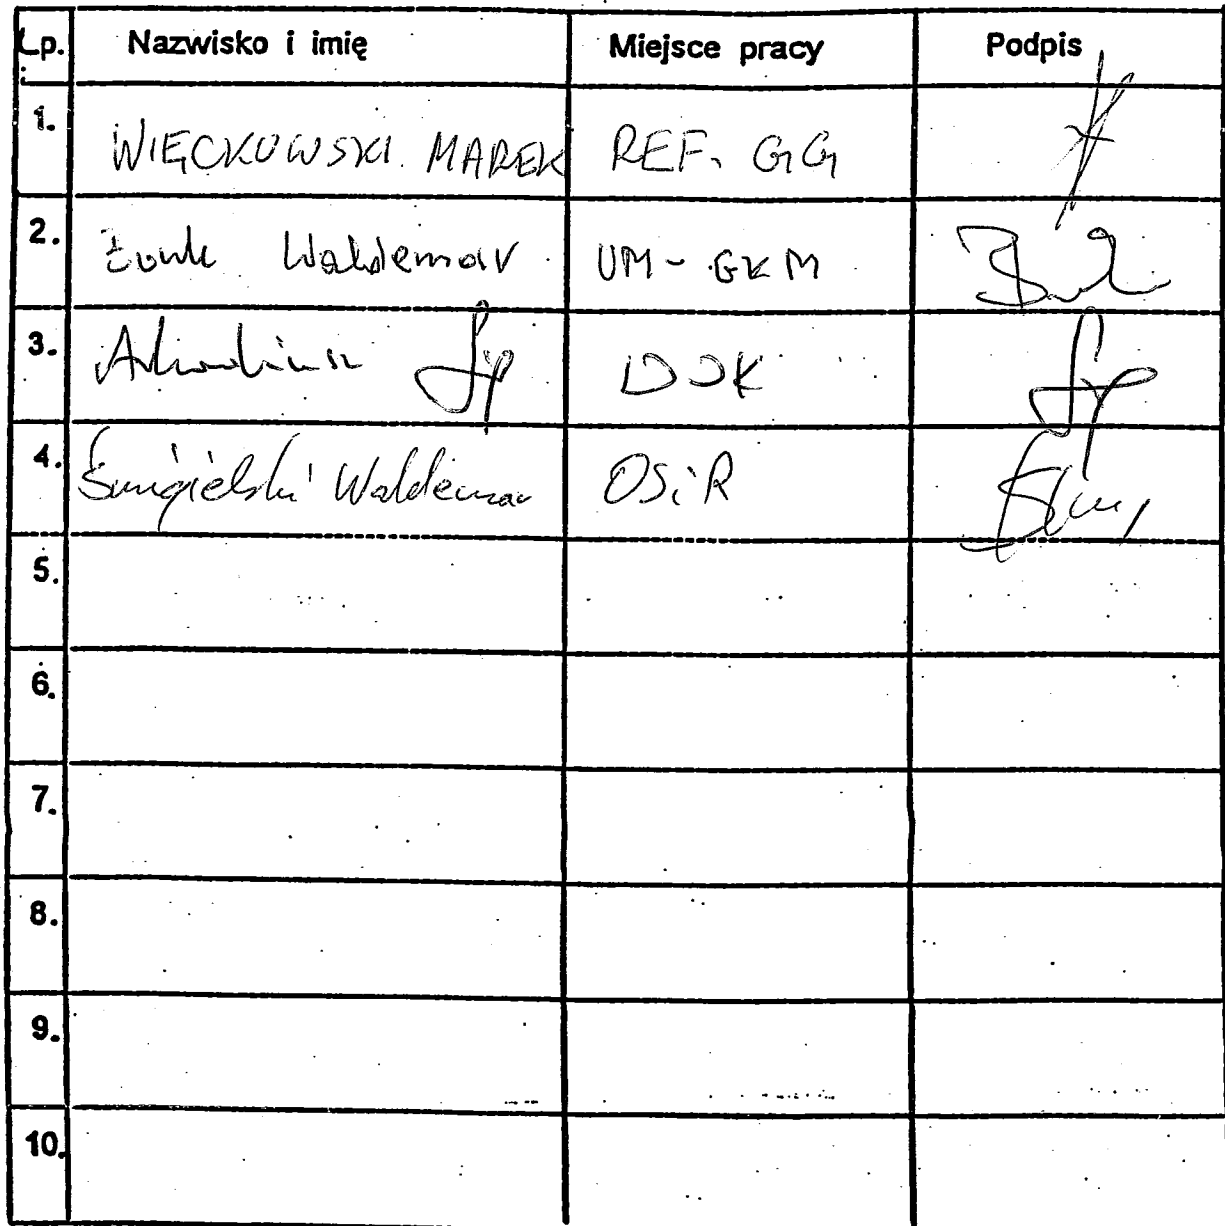 Lp. Nazwisko i imię Miejsce pracy Podpis
1. WIĘCKOWSKI MAREK REF. GG
2. Waldemar UM - GKM
3. Arkadiusz DOK
4. Śmigielski Waldemar OSiR
5.
6.
7.
8.
9.
10.